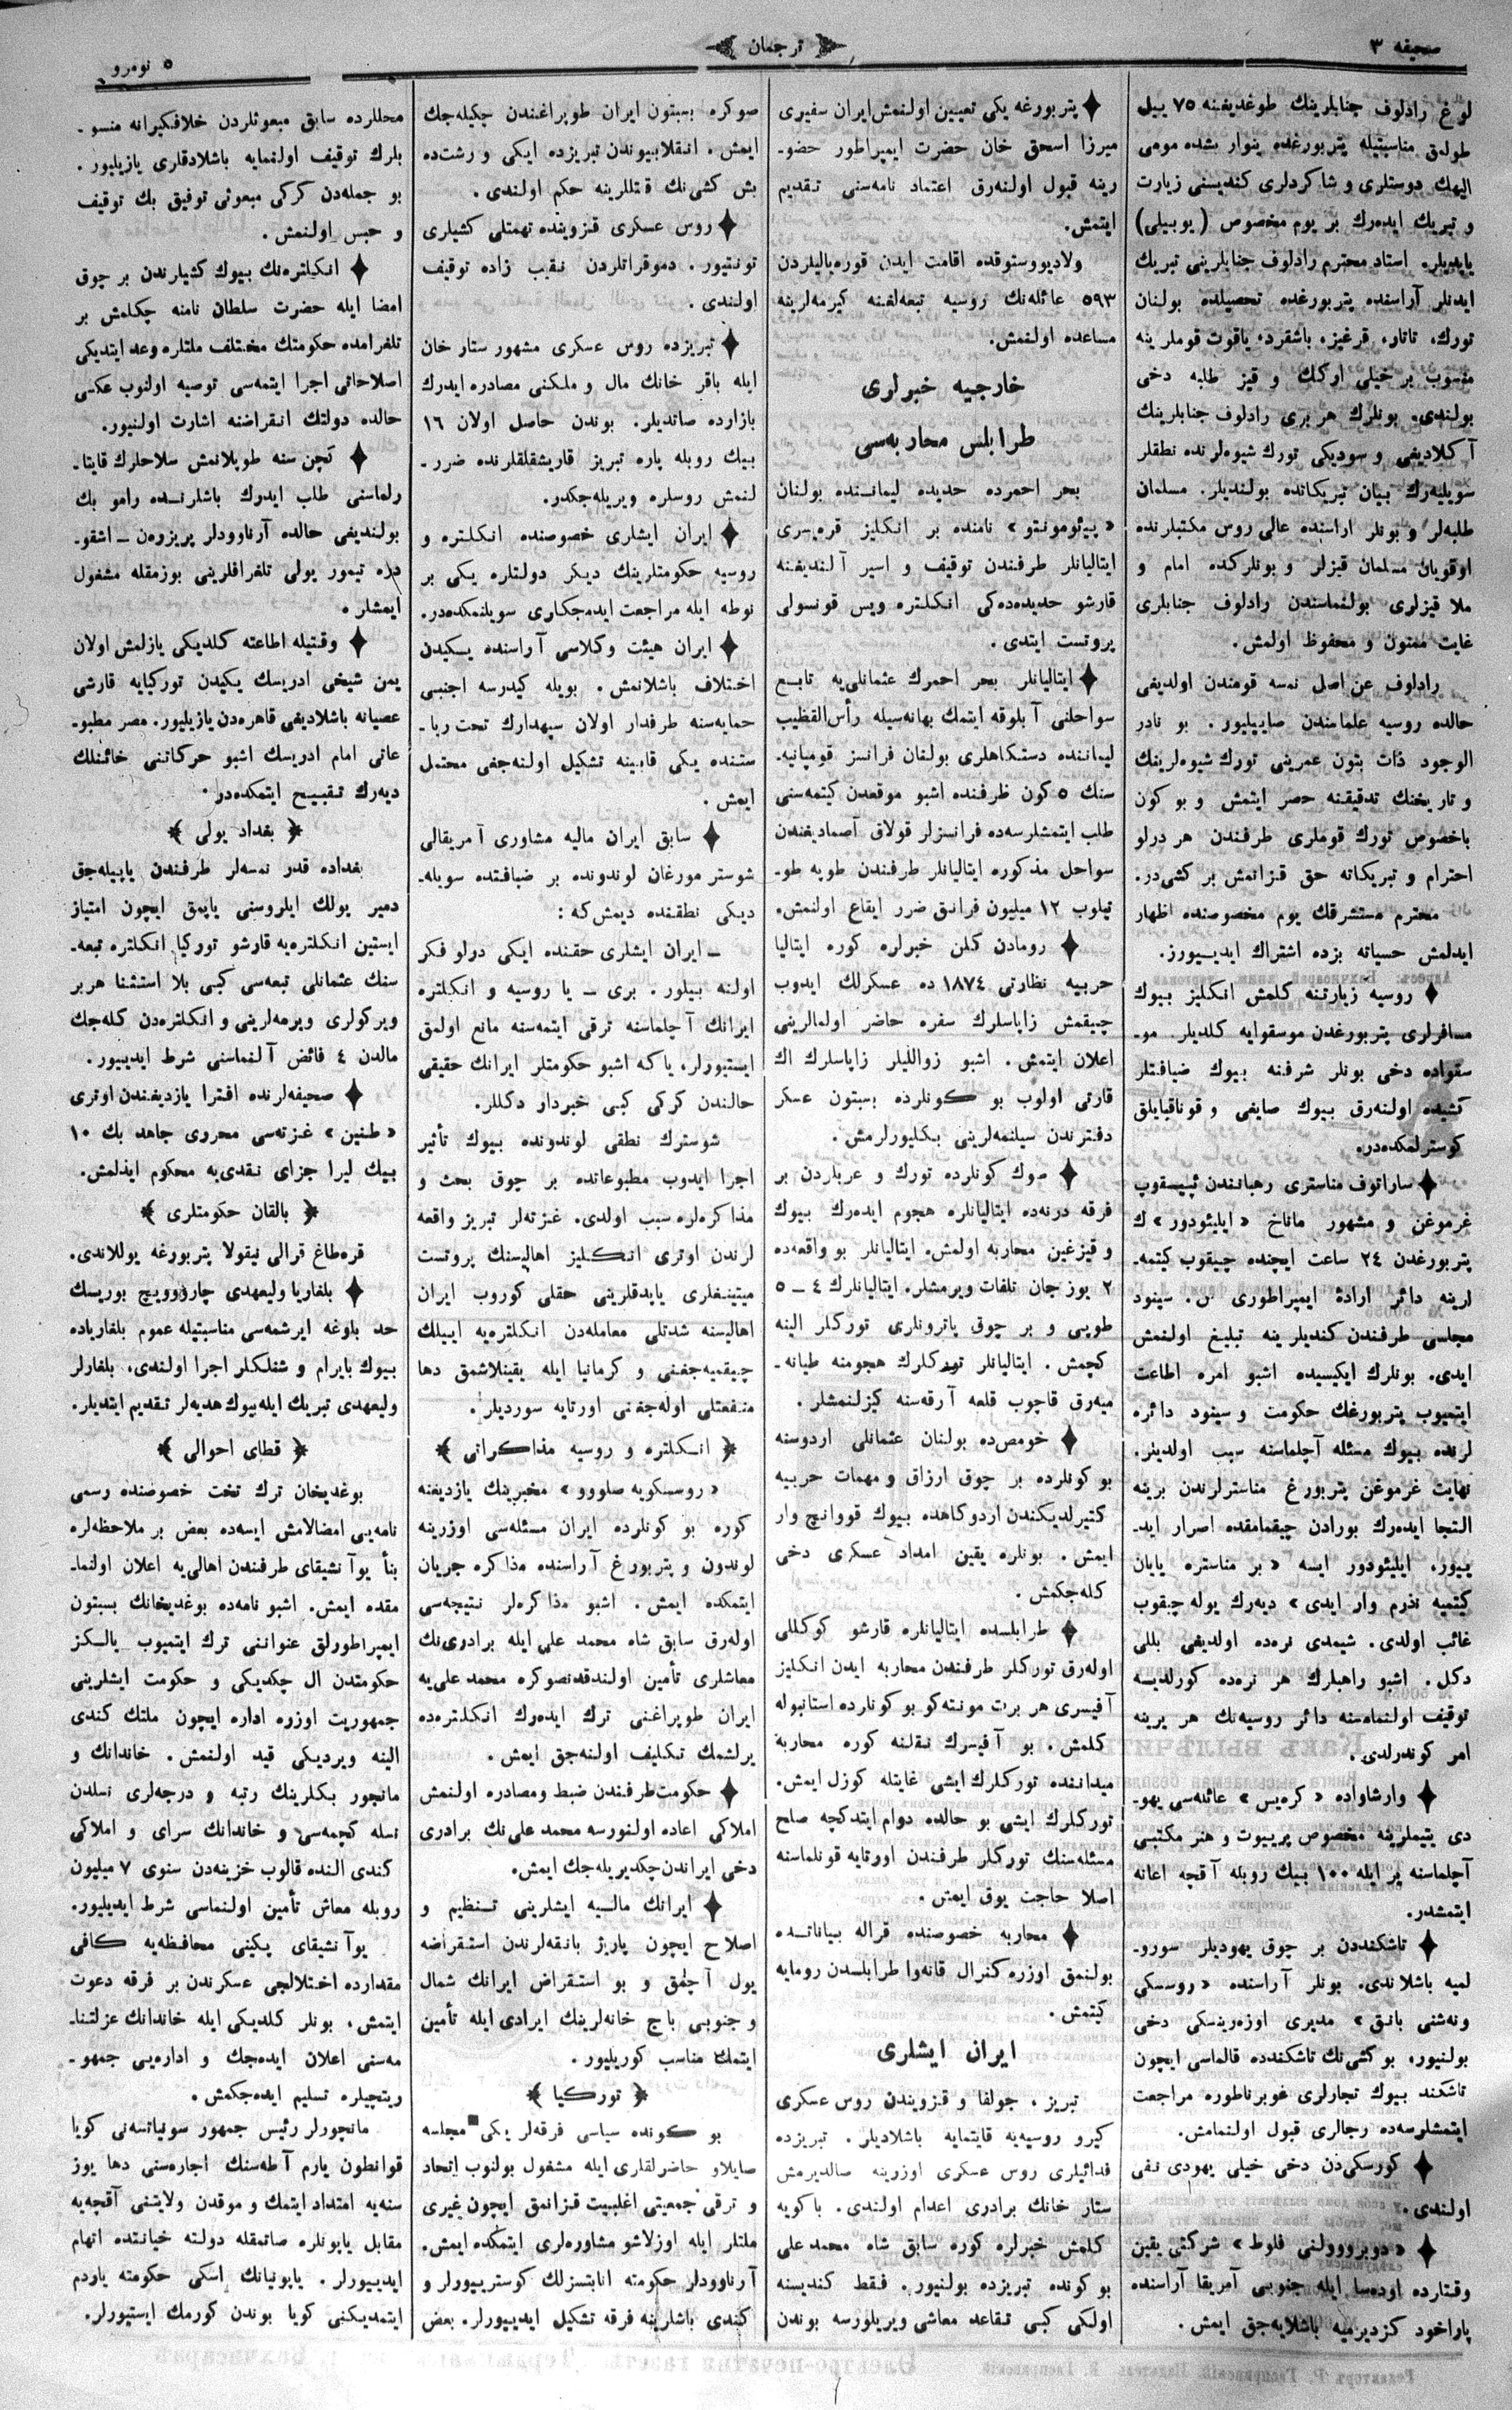 صحیفه ۳
ترجمان
۵ نومرو
لوغ رادلوف جنابلرینك طوغدیغنه ۷۵ ییل
طولدق مناسبتیله پتربورغده ینوار بشده مومی
الیهك دوستلری و شاكردلری كندیسنی زیارت
و تبریك ایدەرك بر یوم مخصوص (یوبیلی)
یاپدیلر. استاد محترم رادلوف جنابلرینی تبریك
ایدنلر آراسنده پتربورغده تحصیلده بولنان
تورك، تاتار، قرغیز، باشقرد، یاقوت قوملرینه
منسوب بر خیلی ارکك و قیز طلبه دخی
بولندی. بونلرك هر بری رادلوف جنابلرینك
آكلادیغی و سودیكی تورك شیوەلرنده نطقلر
سویلیەرك بیان تبریكاتده بولندیلر. مسلمان
طلبەلر و بونلر اراسنده عالی روس مكتبلرنده
اوقویان مسلمان قیزلر و بونلركده امام و
ملا قیزلری بولنماسندن رادلوف جنابلری
غایت ممنون و محفوظ اولمش.
رادلوف عن اصل نمسه قومندن اولدیغی
حالده روسیه علماسندن صاییلیور. بو نادر
الوجود ذات بتون عمرینی تورك شیوەلرینك
و تاریخنك تدقیقنه حصر ایتمش و بو كون
باخصوص تورك قوملری طرفندن هر درلو
احترام و تبریكاته حق قزانمش بر كشی‌در.
محترم مستشرقك یوم مخصوصنده اظهار
ایدلمش حسیاته بزده اشتراك ایدییورز.
♦ روسیه زیارتنه كلمش انكلیز بیوك
مسافرلری پتربورغدن موسقوایه كلدیلر. مو-
سقواده دخی بونلر شرفنه بیوك ضیافتلر
كشیده اولنەرق بیوك صایغی و قوناقپایلق
كوسترلمكده‌در.
♦ ساراتوف مناستری رهبانندن ئپیسقوپ
غرموغن و مشهور ماناخ «ایلیئودور»ك
پتربورغدن ۲٤ ساعت ایچنده چیقوب كیتمه-
لرینه دائر ارادۀ ایمپراطوری س. سینود
مجلسی طرفندن كندیلرینه تبلیغ اولنمش
ایدی. بونلرك ایكیسیده اشبو امره اطاعت
ایتمیوب پتربورغك حكومت و سینود دائره
لرنده بیوك مسئله آچلماسنه سبب اولدیلر.
نهایت غرموغن پتربورغ مناسترلرندن برینه
التجا ایدەرك بورادن چیقمامقده اصرار اید-
ییور. ایلیئودور ایسه «بر مناستره یایان
كیتمیه نذرم وار ایدی» دیەرك یوله چیقوب
غائب اولدی. شیمدی نرەده اولدیغی بللی
دكل. اشبو راهبلرك هر نرەده كورلدیسه
توقیف اولنماسنه دائر روسیەنك هر یرینه
امر كوندرلدی.
♦ وارشاواده «كرەیس» عائلەسی یهو-
دی یتیملرینه مخصوص پرییوت و هنر مكتبی
آچلماسنه پر ایله ۱۰۰ بیك روبله آقچه اعانه
ایتمشدر.
♦ تاشكنددن بر چوق یهودیلر سورو-
لمیه باشلاندی. بونلر آراسنده «روسسكی
ونەشنی بانق» مدیری اوزەرینسكی دخی
بولنیور، بو كشی‌نك تاشكندده قالماسی ایچون
تاشكند بیوك تجارلری غوبرناطوره مراجعت
ایتمشلرسەده رجالری قبول اولنمامش.
♦ كورسكی‌دن دخی خیلی یهودی نفی
اولندی.
♦ «دوبرووولنی فلوط» شركتی یقین
وقتارده اودەسا ایله جنوبی آمریقا آراسنده
پاراخود كزدیرمیه باشلایەجق ایمش.
♦ پتربورغه یكی تعیین اولنمش ایران سفیری
میرزا اسحق خان حضرت ایمپراطور حضو-
رینه قبول اولنەرق اعتماد نامەسنی تقدیم
ایتمش.
ولادیووستوقده اقامت ایدن قورەیالیلردن
۵۹۳ عائلەنك روسیه تبعەلغنه كیرمەلرینه
مساعده اولنمش.
خارجیه خبرلری
طرابلس محاربەسی
بحر احمرده حدیده لیماننده بولنان
«پیئومونتو» نامنده بر انكلیز قرەپسری
ایتالیانلر طرفندن توقیف و اسیر آلندیغنه
قارشو حدیدەدەكی انكلتره ویس قونسولی
پروتست ایتدی.
♦ ایتالیانلر بحر احمرك عثمانلی‌یه تابع
سواحلنی آبلوقه ایتمك بهانەسیله رأس‌القظیب
لیماننده دستكاهلری بولنان فرانسز قومپانیه-
سنك ۵ كون ظرفنده اشبو موقعدن كیتمەسنی
طلب ایتمشلرسەده فرانسزلر قولاق آصمادیغندن
سواحل مذكوره ایتالیانلر طرفندن طوپه طو-
تیلوب ۱۲ میلیون فرانق ضرر ایقاع اولنمش.
♦ رومادن كلن خبرلره كوره ایتالیا
حربیه نظارتی ۱۸۷٤ ده عسكرلك ایدوب
چیقمش زاپاسلرك سفره حاضر اولمالرینی
اعلان ایتمش. اشبو زواللیلر زاپاسلرك اك
قارتی اولوب بو كونلرده بسبتون عسكر
دفترندن سیلنمەلرینی بكلیورلرمش.
♦ صوك كونلرده تورك و عربلردن بر
فرقه درنەده ایتالیانلره هجوم ایدەرك بیوك
و قیزغین محاربه اولمش. ایتالیانلر بو واقعەده
۲ یوز جان تلفات ویرمشلر. ایتالیانلرك ٤ ـ ۵
طوپی و بر چوق پاترونلری توركلر الینه
كچمش. ایتالیانلر توركلرك هجومنه طیانه-
میەرق قاچوب قلعه آرقەسنه كیزلنمشلر.
♦ خومص‌ده بولنان عثمانلی اردوسنه
بو كونلرده بر چوق ارزاق و مهمات حربیه
كتیرلدیكندن اردوكاهده بیوك قووانچ وار
ایمش. بونلره یقین امداد عسكری دخی
كلەجكمش.
♦ طرابلسده ایتالیانلره قارشو كوكللی
اولەرق توركلر طرفندن محاربه ایدن انكلیز
آفیسری هربرت مونتەكو بو كونلرده استانبوله
كلمش. بو آفیسرك نقلنه كوره محاربه
میداننده توركلرك ایشی غایتله كوزل ایمش.
توركلرك ایشی بو حالده دوام ایتدكچه صلح
مسئلەسنك توركلر طرفندن اورتایه قونلماسنه
اصلا حاجت یوق ایمش.
♦ محاربه خصوصنده قراله بیاناتده
بولنمق اوزره كنرال قانەوا طرابلسدن رومایه
كیتمش.
ایران ایشلری
تبریز، جولفا و قزویندن روس عسكری
كیرو روسیەیه قایتمایه باشلادیلر. تبریزده
فدائیلری روس عسكری اوزرینه صالدیرمش
ستار خانك برادری اعدام اولندی. باكویه
كلمش خبرلره كوره سابق شاه محمد علی
بو كونده تبریزده بولنیور. فقط كندیسنه
اولكی كبی تقاعد معاشی ویریلورسه بوندن
صوكره بسبتون ایران طوپراغندن چكیلەجك
ایمش. انقلابیوندن تبریزده ایكی و رشت‌ده
بش كشی‌نك قتللرینه حكم اولندی.
♦ روس عسكری قزوینده تهمتلی كشیلری
توتیور. دموقراتلردن نقیب زاده توقیف
اولندی.
♦ تبریزده روس عسكری مشهور ستار خان
ایله باقر خانك مال و ملكنی مصادره ایدرك
بازارده صاتدیلر. بوندن حاصل اولان ۱٦
بیك روبله پاره تبریز قاریشقلقلرنده ضرر-
لنمش روسلره ویریلەجكدر.
♦ ایران ایشلری خصوصنده انكلتره و
روسیه حكومتلرینك دیكر دولتلره یكی بر
نوطه ایله مراجعت ایدەجكلری سویلنمكدەدر.
♦ ایران هیئت وكلاسی آراسنده یكیدن
اختلاف باشلانمش. بویله كیدرسه اجنبی
حمایەسنه طرفدار اولان سپهدارك تحت ریا-
ستنده یكی قابینه تشكیل اولنەجغی محتمل
ایمش.
♦ سابق ایران مالیه مشاوری آمریقالی
شوستر مورغان لوندونده بر ضیافتده سویله-
دیكی نطقنده دیمش‌كه:
ـ ایران ایشلری حقنده ایكی درلو فكر
اولنه بیلور. بری ـ یا روسیه و انكلتره
ایرانك آچلماسنه ترقی ایتمەسنه مانع اولمق
ایستیورلر، یاكه اشبو حكومتلر ایرانك حقیقی
حالندن كركی كبی خبردار دكللر.
شوسترك نطقی لوندونده بیوك تأثیر
اجرا ایدوب مطبوعاتده بر چوق بحث و
مذاكرەلره سبب اولدی. غزتەلر تبریز واقعه
لرندن اوتری انكلیز اهالیسنك پروتست
میتینغلری یاپدقلرینی حقلی كوروب ایران
اهالیسنه شدتلی معاملەدن انكلترەیه ایپلك
چیقمیەجغنی و كرمانیا ایله یقینلاشمق دها
منفعتلی اولەجغنی اورتایه سوردیلر.
﴿ انكلتره و روسیه مذاكراتی ﴾
«روسسكویه صلووو» مخبرینك یازدیغنه
كوره بو كونلرده ایران مسئلەسی اوزرینه
لوندون و پتربورغ آراسنده مذاكره جریان
ایتمكده ایمش. اشبو مذاكرەلر نتیجەسی
اولەرق سابق شاه محمد علی ایله برادری‌نك
معاشلری تأمین اولندقدنصوكره محمد علی‌یه
ایران طوپراغنی ترك ایدەرك انكلترەده
یرلشمك تكلیف اولنەجق ایمش.
♦ حكومت طرفندن ضبط و مصادره اولنمش
املاكی اعاده اولنورسه محمد علی‌نك برادری
دخی ایراندن چكدیریلەجك ایمش.
♦ ایرانك مالیه ایشلرینی تنظیم و
اصلاح ایچون پاریژ بانقەلرندن استقراضه
یول آچمق و بو استقراض ایرانك شمال
و جنوبی باج خانەلرینك ایرادی ایله تأمین
ایتمك مناسب كوریلیور.
﴿ توركیا ﴾
بو كونده سیاسی فرقەلر یكی مجلسه
صایلاو حاضرلقلری ایله مشغول بولنوب اتحاد
و ترقی جمعیتی اغلبیت قزانمق ایچون غیری
ملتلر ایله اوزلاشو مشاورەلری ایتمكده ایمش.
آرناوودلر حكومته انابتسزلك كوستریبورلر و
كندی باشلرینه فرقه تشكیل ایدییورلر. بعض
محللرده سابق مبعوثلردن خلافكیرانه منسو-
بلرك توقیف اولنمایه باشلادقلری یازیلیور.
بو جملەدن كركی مبعوثی توفیق بك توقیف
و حبس اولنمش.
♦ انكلترەنك بیوك كشیلرندن بر چوق
امضا ایله حضرت سلطان نامنه چكلمش بر
تلغرامده حكومتك مختلف ملتلره وعد ایتدیكی
اصلاحاتی اجرا ایتمەسی توصیه اولنوب عكسی
حالده دولتك انقراضنه اشارت اولنیور.
♦ كچن سنه طوپلانمش سلاحلرك قایتا-
رلماسنی طلب ایدرك باشلرنده رامو بك
بولندیغی حالده آرناوودلر پریزرەن ـ اشقو-
دره تیمور یولی تلغرافلرینی بوزمقله مشغول
ایمشلر.
♦ وقتیله اطاعته كلدیكی یازلمش اولان
یمن شیخی ادریسك یكیدن توركیایه قارشی
عصیانه باشلادیغی قاهرەدن یازیلیور. مصر مطبو-
عاتی امام ادریسك اشبو حركاتنی خائنلك
دیەرك تقبیح ایتمكدەدر.
﴿ بغداد یولی ﴾
بغداده قدر نمسەلر طرفندن یاپیلەجق
دمیر یولك ایلروسنی یاپمق ایچون امتیاز
ایستین انكلترەیه قارشو توركیا انكلتره تبعه-
سنك عثمانلی تبعەسی كبی بلا استثنا هر بر
ویركولری ویرمەلرینی و انكلترەدن كلەجك
مالدن ٤ فائض آلنماسنی شرط ایدییور.
♦ صحیفەلرنده افترا یازدیغندن اوتری
«طنین» غزتەسی محرری جاهد بك ۱۰
بیك لیرا جزای نقدی‌یه محكوم ایدلمش.
﴿ بالقان حكومتلری ﴾
قرەطاغ قرالی نیقولا پتربورغه یوللاندی.
♦ بلغاریا ولیعهدی چارەوویچ بوریسك
حد بلوغه ایرشمەسی مناسبتیله عموم بلغاریاده
بیوك بایرام و شنلكلر اجرا اولندی، بلغارلر
ولیعهدی تبریك ایله بیوك هدیەلر تقدیم ایتدیلر.
﴿ قطای احوالی ﴾
بوغدیخان ترك تخت خصوصنده رسمی
نامەیی امضالامش ایسەده بعض بر ملاحظەلره
بنأ یوآنشیقای طرفندن اهالی‌یه اعلان اولنما-
مقده ایمش. اشبو نامەده بوغدیخانك بسبتون
ایمپراطورلق عنواننی ترك ایتمیوب یالكز
حكومتدن ال چكدیكی و حكومت ایشلرینی
جمهوریت اوزره اداره ایچون ملتك كندی
الینه ویردیكی قید اولنمش. خاندانك و
مانجور بكلرینك رتبه و درجەلری نسلدن
نسله كچمەسی و خاندانك سرای و املاكی
كندی النده قالوب خزینەدن سنوی ۷ میلیون
روبله معاش تأمین اولنماسی شرط ایدیلیور.
یوآنشیقای پكینی محافظەیه كافی
مقدارده اختلالجی عسكرندن بر فرقه دعوت
ایتمش، بونلر كلدیكی ایله خاندانك عزلتنا-
مەسنی اعلان ایدەجك و ادارەیی جمهو-
ریتچیلره تسلیم ایدەجكمش.
مانجورلر رئیس جمهور سونیاتسەنی كویا
قوانطون یارم آطەسنك اجارەسنی دها یوز
سنەیه امتداد ایتمك و موقدن ولایتنی آقچەیه
مقابل یاپونلره صاتمقله دولته خیانتده اتهام
ایدییورلر. یاپونیانك اسكی حكومته یاردم
ایتمدیكنی كویا بوندن كورمك ایستیورلر.